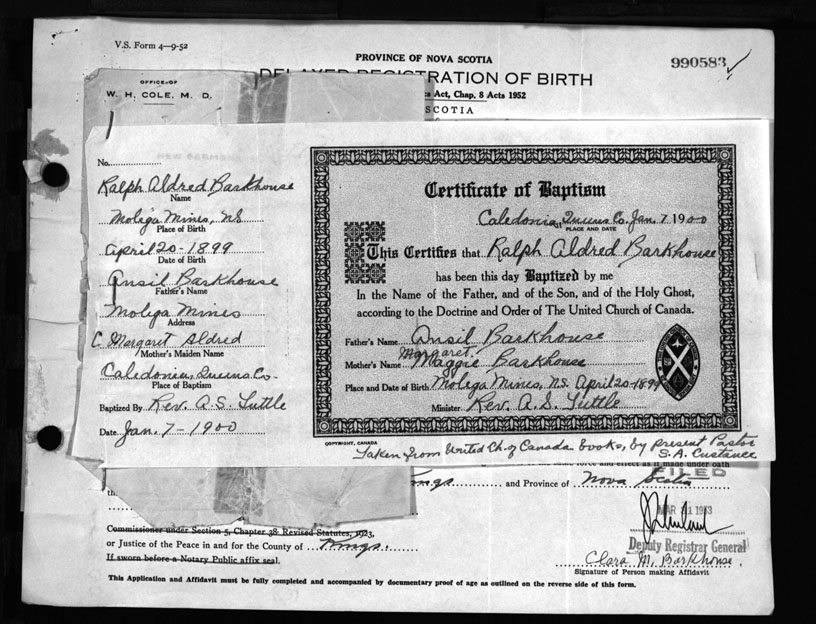 V.S. Form 4-9-52
PROVINCE OF NOVA SCOTIA
990583
DELAYED REGISTRATION OF BIRTH
OFFICE OF
W. H. COLE, M. D.
Act, Chap. 8 Acts 1952
SCOTIA
No.
Ralph Aldred Barkhouse
Name
Molega Mines, NS
Place of Birth
April 20-1899
Date of Birth
Ansil Barkhouse
Father's Name
Molega Mines
Address
C. Margaret Aldred
Mother's Maiden Name
Caledonia, Queens Co.
Place of Baptism
Baptized By Rev. A. S. Tuttle
Date Jan. 7-1900
Certificate of Baptism
Caledonia, Queens Co. Jan. 7 1900
PLACE AND DATE
This Certifies that Ralph Aldred Barkhouse
has been this day Baptized by me
In the Name of the Father, and of the Son, and of the Holy Ghost,
according to the Doctrine and Order of The United Church of Canada.
Father's Name Ansil Barkhouse
Margaret.
Mother's Name Maggie Barkhouse
Place and Date of Birth Molega Mines, N.S. April 20-1899
Minister Rev. A. S. Tuttle
COPYRIGHT, CANADA
Taken from United Ch. of Canada books, by present Pastor
S. A. Custance
same force and effect as if made under oath
FILED
Kings and Province of Nova Scotia
th
MAR 31 1953
Commissioner under Section 5, Chapter 38 Revised Statutes, 1923,
or Justice of the Peace in and for the County of Kings
Deputy Registrar General
If sworn before a Notary Public affix seal.
Clara M. Barkhouse
Signature of Person making Affidavit
This Application and Affidavit must be fully completed and accompanied by documentary proof of age as outlined on the reverse side of this form.